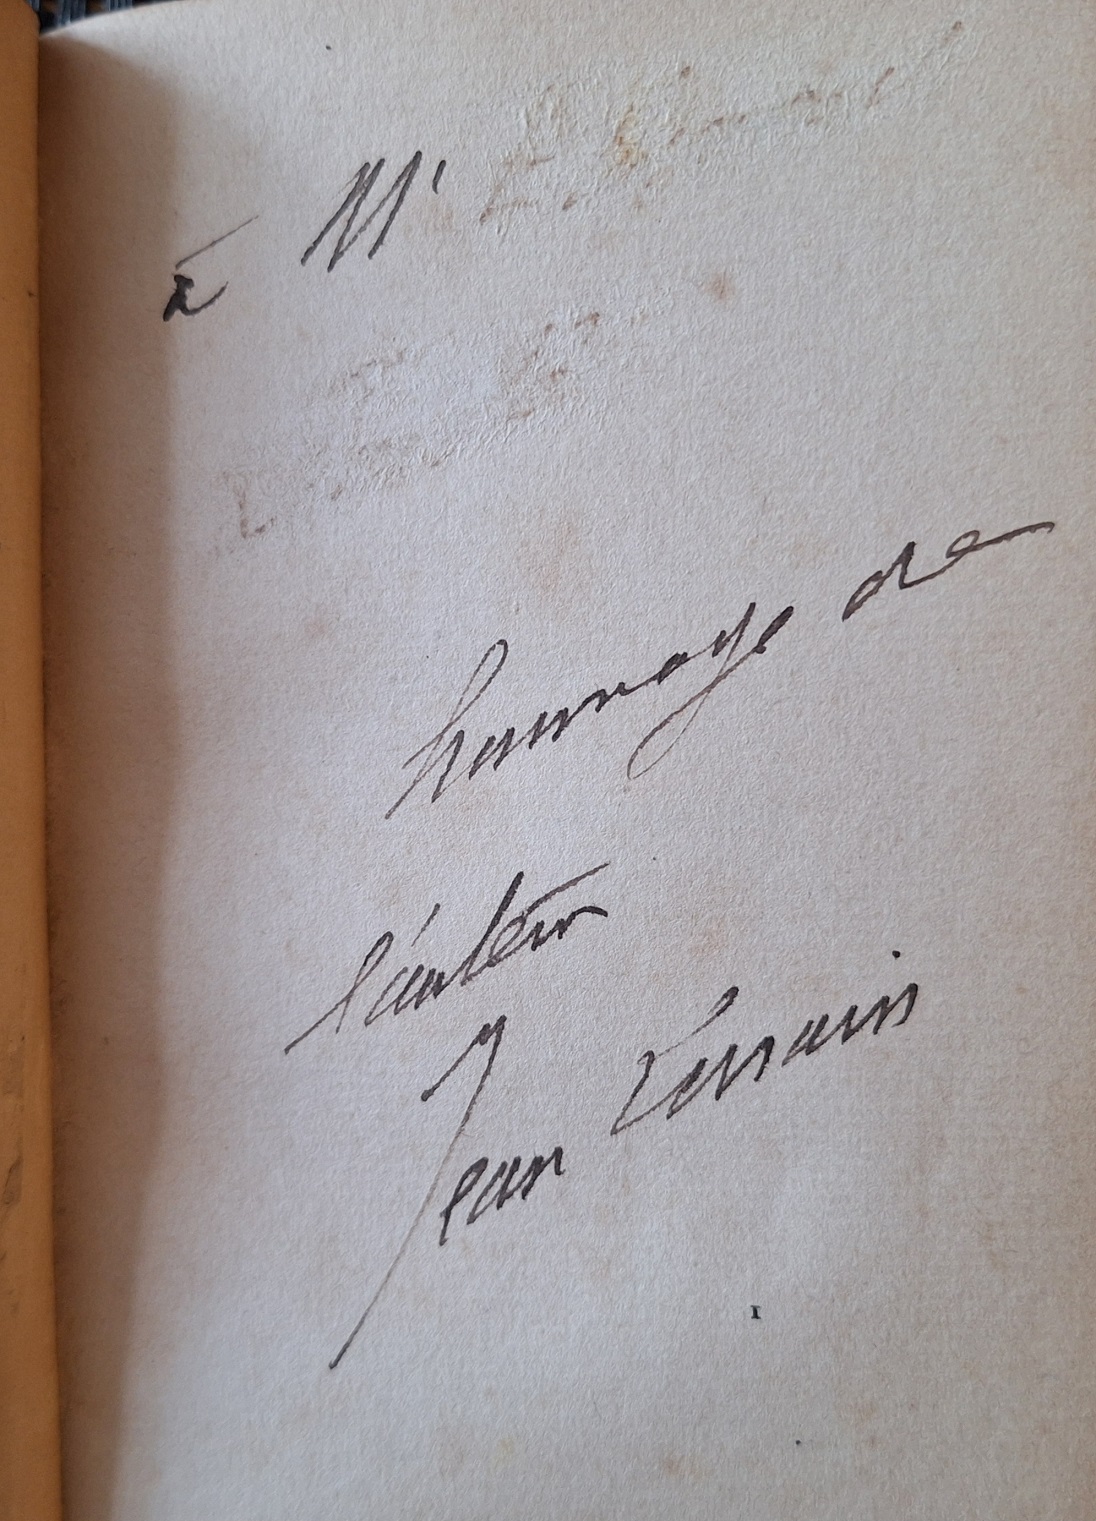 à Mr
hommage de
l'auteur
Jean Lorrain
1